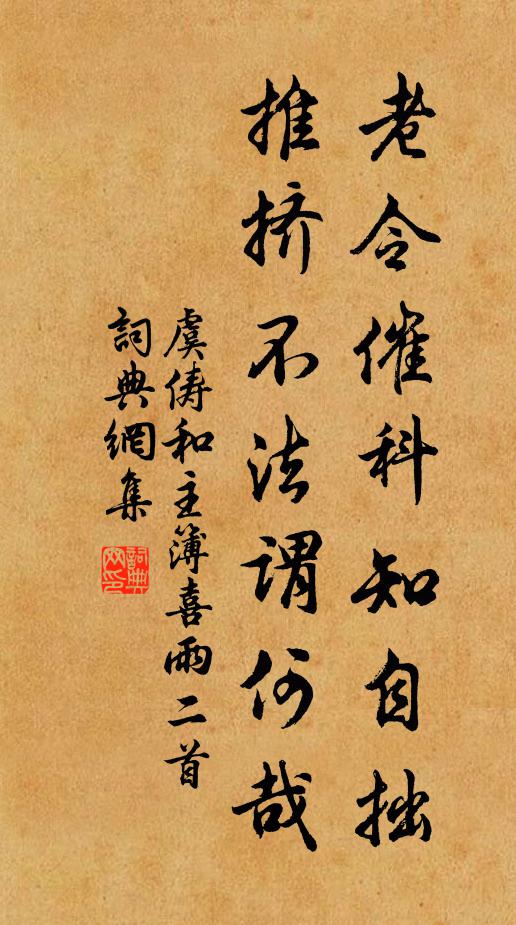 老令催科知自拙
推挤不法謂何哉
虞儔和主簿喜雨二首
詞典網集
詞典網印